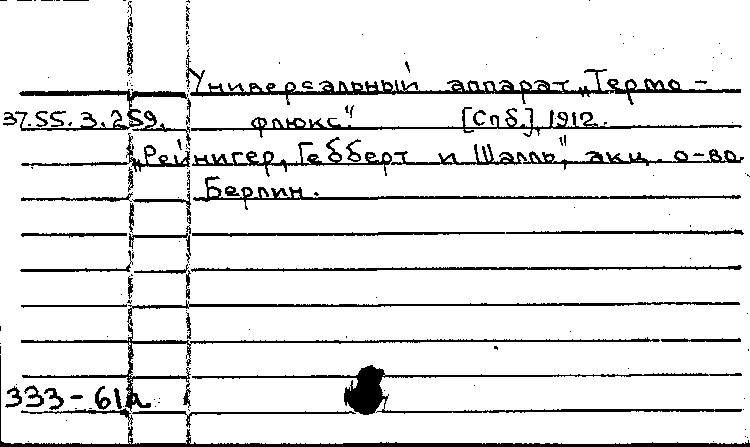 Универсальный аппарат „Термо-
37.55.3.259. флюкс“. [Спб.], 1912.
„Рейнигер, Гебберт и Шалль“, акц. о-во.
Берлин.
333-61а